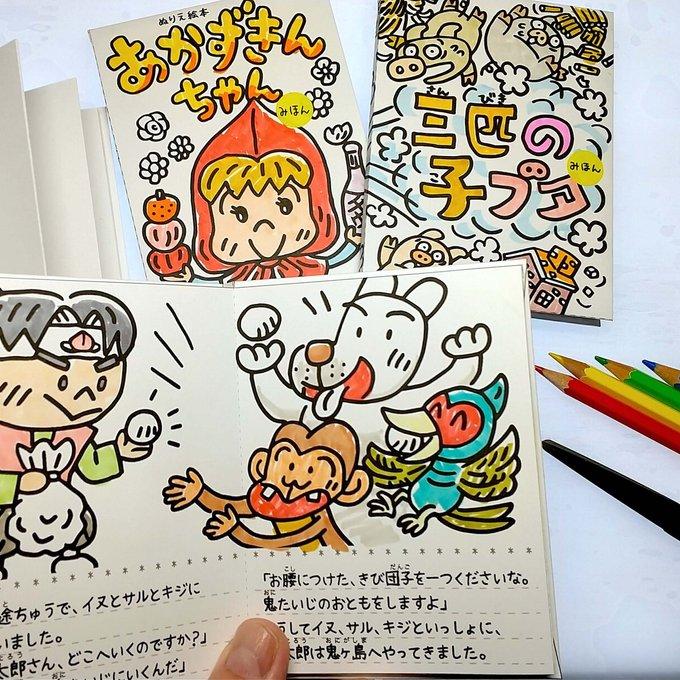 ぬりえ絵本
あかずきん
ちゃん
みほん
さん びき
三匹の
子ブタ
みほん
と
途ちゅうで、イヌとサルとキジに
いました。
ろう
郎さん、どこへいくのですか?」
いじにいくんだ」
こし だんご
「お腰につけた、きび団子を一つくださいな。
おに
鬼たいじのおともをしますよ」
してイヌ、サル、キジといっしょに、
ろう おにがしま
郎は鬼ヶ島へやってきました。